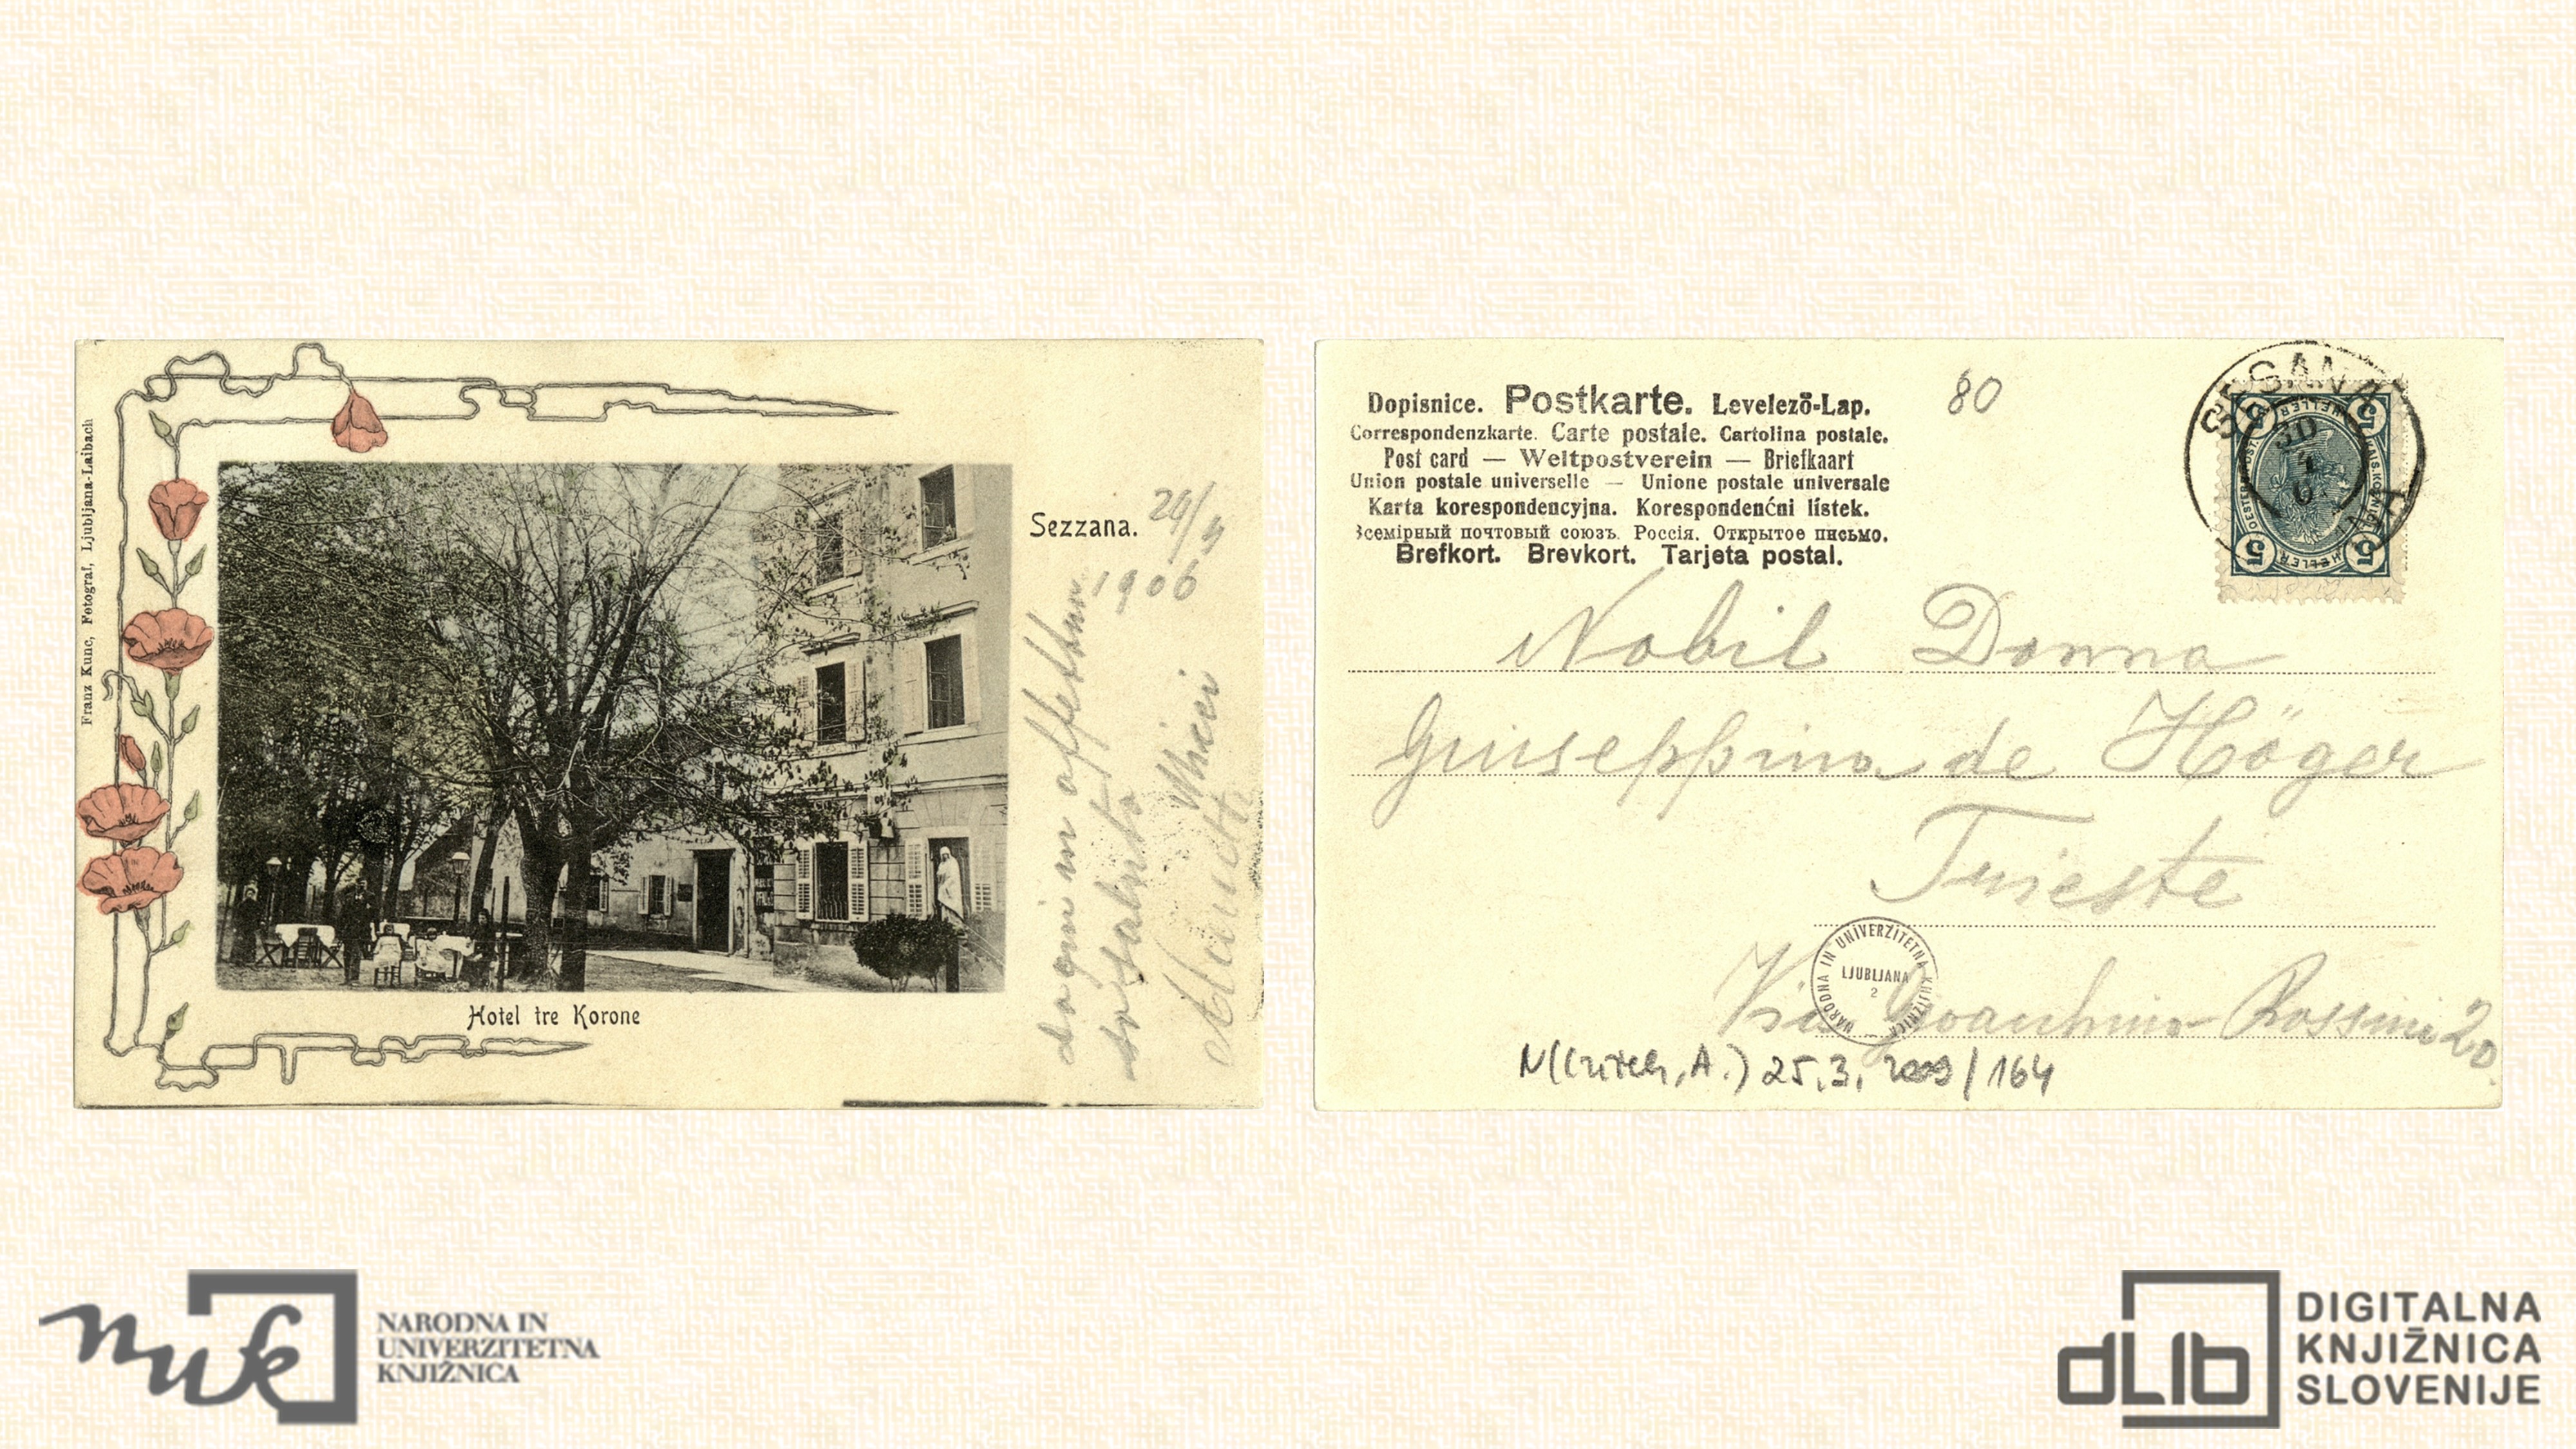 Franz Kunc, Fotograf, Ljubljana-Laibach
Sezzana.
1906
Hotel tre Korone
Dopisnice. Postkarte. Levelező-Lap.
Correspondenzkarte. Carte postale. Cartolina postale.
Post card — Weltpostverein — Briefkaart
Union postale universelle — Unione postale universale
Karta korespondencyjna. Korespondenćni lístek.
Всемірный почтовый союзъ. Россія. Открытое письмо.
Brefkort. Brevkort. Tarjeta postal.
80
5 HELLER 5
5 HELLER 5
30
4
Nobil Donna
Giuseppina de Höger
Trieste
Via Rossini 20.
NARODNA IN UNIVERZITETNA KNJIŽNICA
LJUBLJANA
2
25.3. 2009/164
nuk
NARODNA IN
UNIVERZITETNA
KNJIŽNICA
dLib
DIGITALNA
KNJIŽNICA
SLOVENIJE